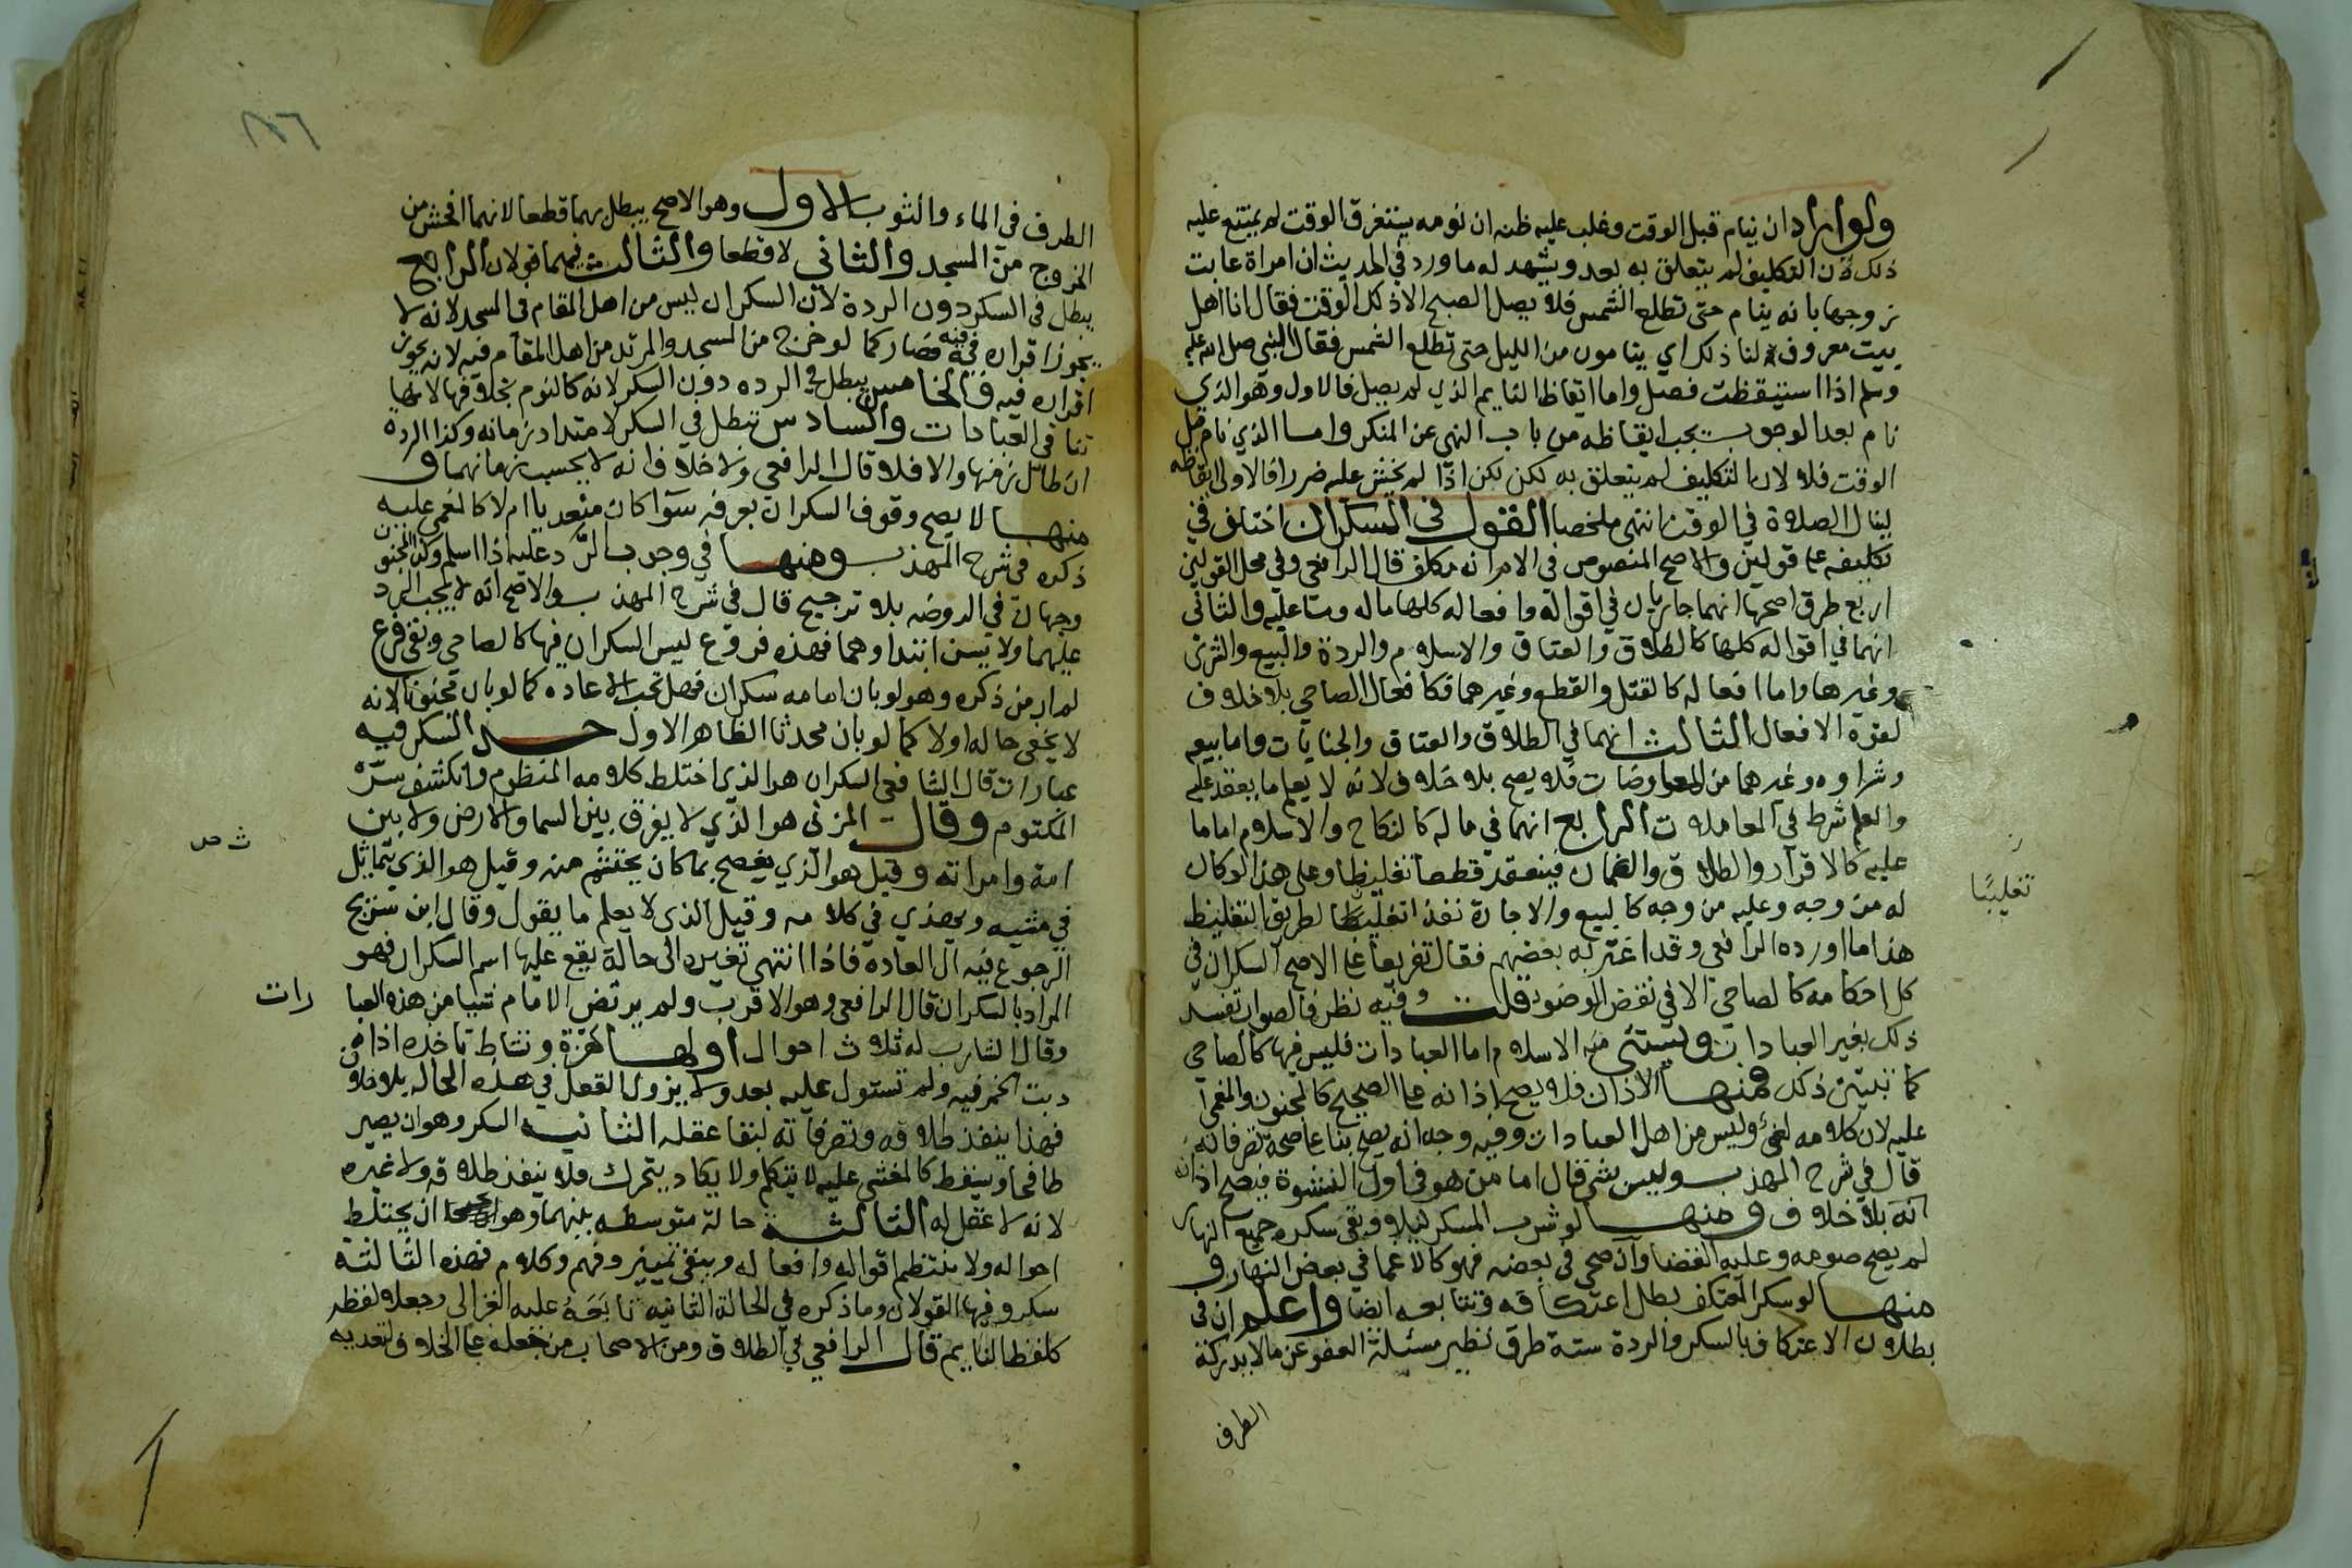 ولو اراد ان ينام قبل الوقت وغلب علي ظنه ان نومه يستغرق الوقت لم يمتنع عليه
ذلك لان التكليف لم يتعلق به بعد ويشهد له ما ورد في الحديث ان امراة عابت
زوجها بانه ينام حتى تطلع الشمس فلا يصل الصبح الا ذلك الوقت فقال انا اهل
بيت معروف لنا ذلك اي ينامون من الليل حتى تطلع الشمس فقال النبي صلى الله عليه
وسلم اذا استيقظت فصل واما ايقاظ النايم الذي لم يصل فالاول وهو الذي
نام بعد الوجوب يجب ايقاظه من باب النهي عن المنكر واما الذي نام قبل
الوقت فلا لان التكليف لم يتعلق به لكن لكن اذا لم يخش عليه ضرر فالاولى ايقاظه
لينال الصلاة في الوقت انتهى ملخصا القول في السكران اختلف في
تكليفه على قولين والاصح المنصوص في الام انه مكلف قال الرافعي وفي محل القولين
اربع طرق اصحها انهما جاريان في اقواله وافعاله كلها ما له وما عليه والثاني
انهما في اقواله كلها كالطلاق والعتاق والاسلام والردة والبيع والشرى
وغيرها واما افعاله كالقتل والقطع وغيرهما فكافعال الصاحي بلا خلاف
لقوة الافعال الثالث انهما في الطلاق والعتاق والجنايات واما بيعه
وشراوه وغيرهما من المعاوضات فلا يصح بلا خلاف لانه لا يعلم ما يعقد عليه
والعلم شرط في المعاملات الرابع انهما في ما له كالنكاح والاسلام اما ما
عليه كالاقرار والطلاق والضمان فينعقد قطعا تغليظا وعلى هذا لو كان
تغليبا
له من وجه وعليه من وجه كالبيع والاجارة نفذ تغليظا لطريق التغليظ
هذا ما اورده الرافعي وقد اغتر به بعضهم فقال تفريعا على الاصح السكران في
كل احكامه كالصاحي الا في نقض الوضوء قلت وفيه نظر فالصواب تقييد
ذلك بغير العبادات ويستثنى منه الاسلام اما العبادات فليس فيها كالصاحي
كما تبين ذلك فمنها الاذان فلا يصح اذانه على الصحيح كالمجنون والمغمى
عليه لان كلامه لغو وليس من اهل العبادات وفيه وجه انه يصح بنا على صحة تصرفاته
قال في شرح المهذب وليس بشي قال اما من هو في اول النشوة فيصح اذانه
انه بلا خلاف ومنها لو شرب المسكر ليلا وبقي سكره جميع النهار
لم يصح صومه وعليه القضا وان صحي في بعضه فهو كالاغما في بعض النهار و
منها لو سكر المعتكف بطل اعتكافه وتتابعه ايضا واعلم ان في
بطلان الاعتكاف بالسكر والردة ستة طرق نظير مسئلة العفو عن ما لا يدركه
الطرف
الطرف في الماء والثوب الاول وهو الاصح يبطل بهما قطعا لانهما افحش من
الخروج من المسجد والثاني لا قطعا والثالث فيهما قولان الرابع
يبطل في السكر دون الردة لان السكران ليس من اهل المقام في المسجد لانه لا
يجوز اقراره فيه فصار كما لو خرج من المسجد والمرتد من اهل المقام فيه لانه يجوز
اقراره فيه والخامس يبطل في الرده دون السكر لانه كالنوم بخلافها لانها
تنافي العبادات والسادس تبطل في السكر لامتداد زمانه وكذا الردة
ان طال زمنها والا فلا قال الرافعي ولا خلاف انه لا يحسب زمانهما و
منها لا يصح وقوف السكران بعرفه سوا كان متعديا ام لا كالمغمى عليه
ذكره في شرح المهذب ومنها في وجوب الرد عليه اذا سلم وكذا المجنون
وجهان في الروضه بلا ترجيح قال في شرح المهذب والاصح انه لا يجب الرد
عليهما ولا يسن ابتداوهما فهذه فروع ليس السكران فيها كالصاحي وبقي فرع
لم ار من ذكره وهو لو بان امامه سكران فهل تجب الاعاده كما لو بان مجنونا لانه
لا يخفى حاله او لا كما لو بان محدثا الظاهر الاول حد السكر فيه
عبارات قال الشافعي السكران هو الذي اختلط كلامه المنظوم وانكشف سره
المكتوم وقال المزني هو الذي لا يفرق بين السما والارض ولا بين
امه وامراته وقيل هو الذي يفصح بما كان يحتشم منه وقيل هو الذي يتمايل
ث ص
في مشيه ويهذي في كلامه وقيل الذي لا يعلم ما يقول وقال ابن سريج
الرجوع فيه الى العاده فاذا انتهى تغيره الى حالة يقع عليها اسم السكران فهو
المراد بالسكران قال الرافعي وهو الاقرب ولم يرتض الامام شيا من هذه العبا
رات
وقال الشارب له ثلاث احوال اولها هزة ونشاط تاخذه اذا
دبت الخمر فيه ولم تستول عليه بعد ولا يزول العقل في هذه الحاله بلا خلاف
فهذا ينفذ طلاقه وتصرفاته لبقا عقله الثانيه السكر وهو ان يصير
طافحا ويسقط كالمغشي عليه لا يتكلم ولا يكاد يتحرك فلا ينفذ طلاقه ولا غيره
لانه لا عقل له الثالثه حالة متوسطه بينهما وهو ان يختلط
احواله ولا ينتظم اقواله وافعاله ويبقى تمييز وفهم وكلام فهذه الثالثة
سكر وفيها القولان وما ذكره في الحالة الثانيه تابعه عليه الغزالي وجعلا لفظه
كلفظ النايم قال الرافعي في الطلاق ومن الاصحاب من جعله على الخلاف لتعديه
١٨٦